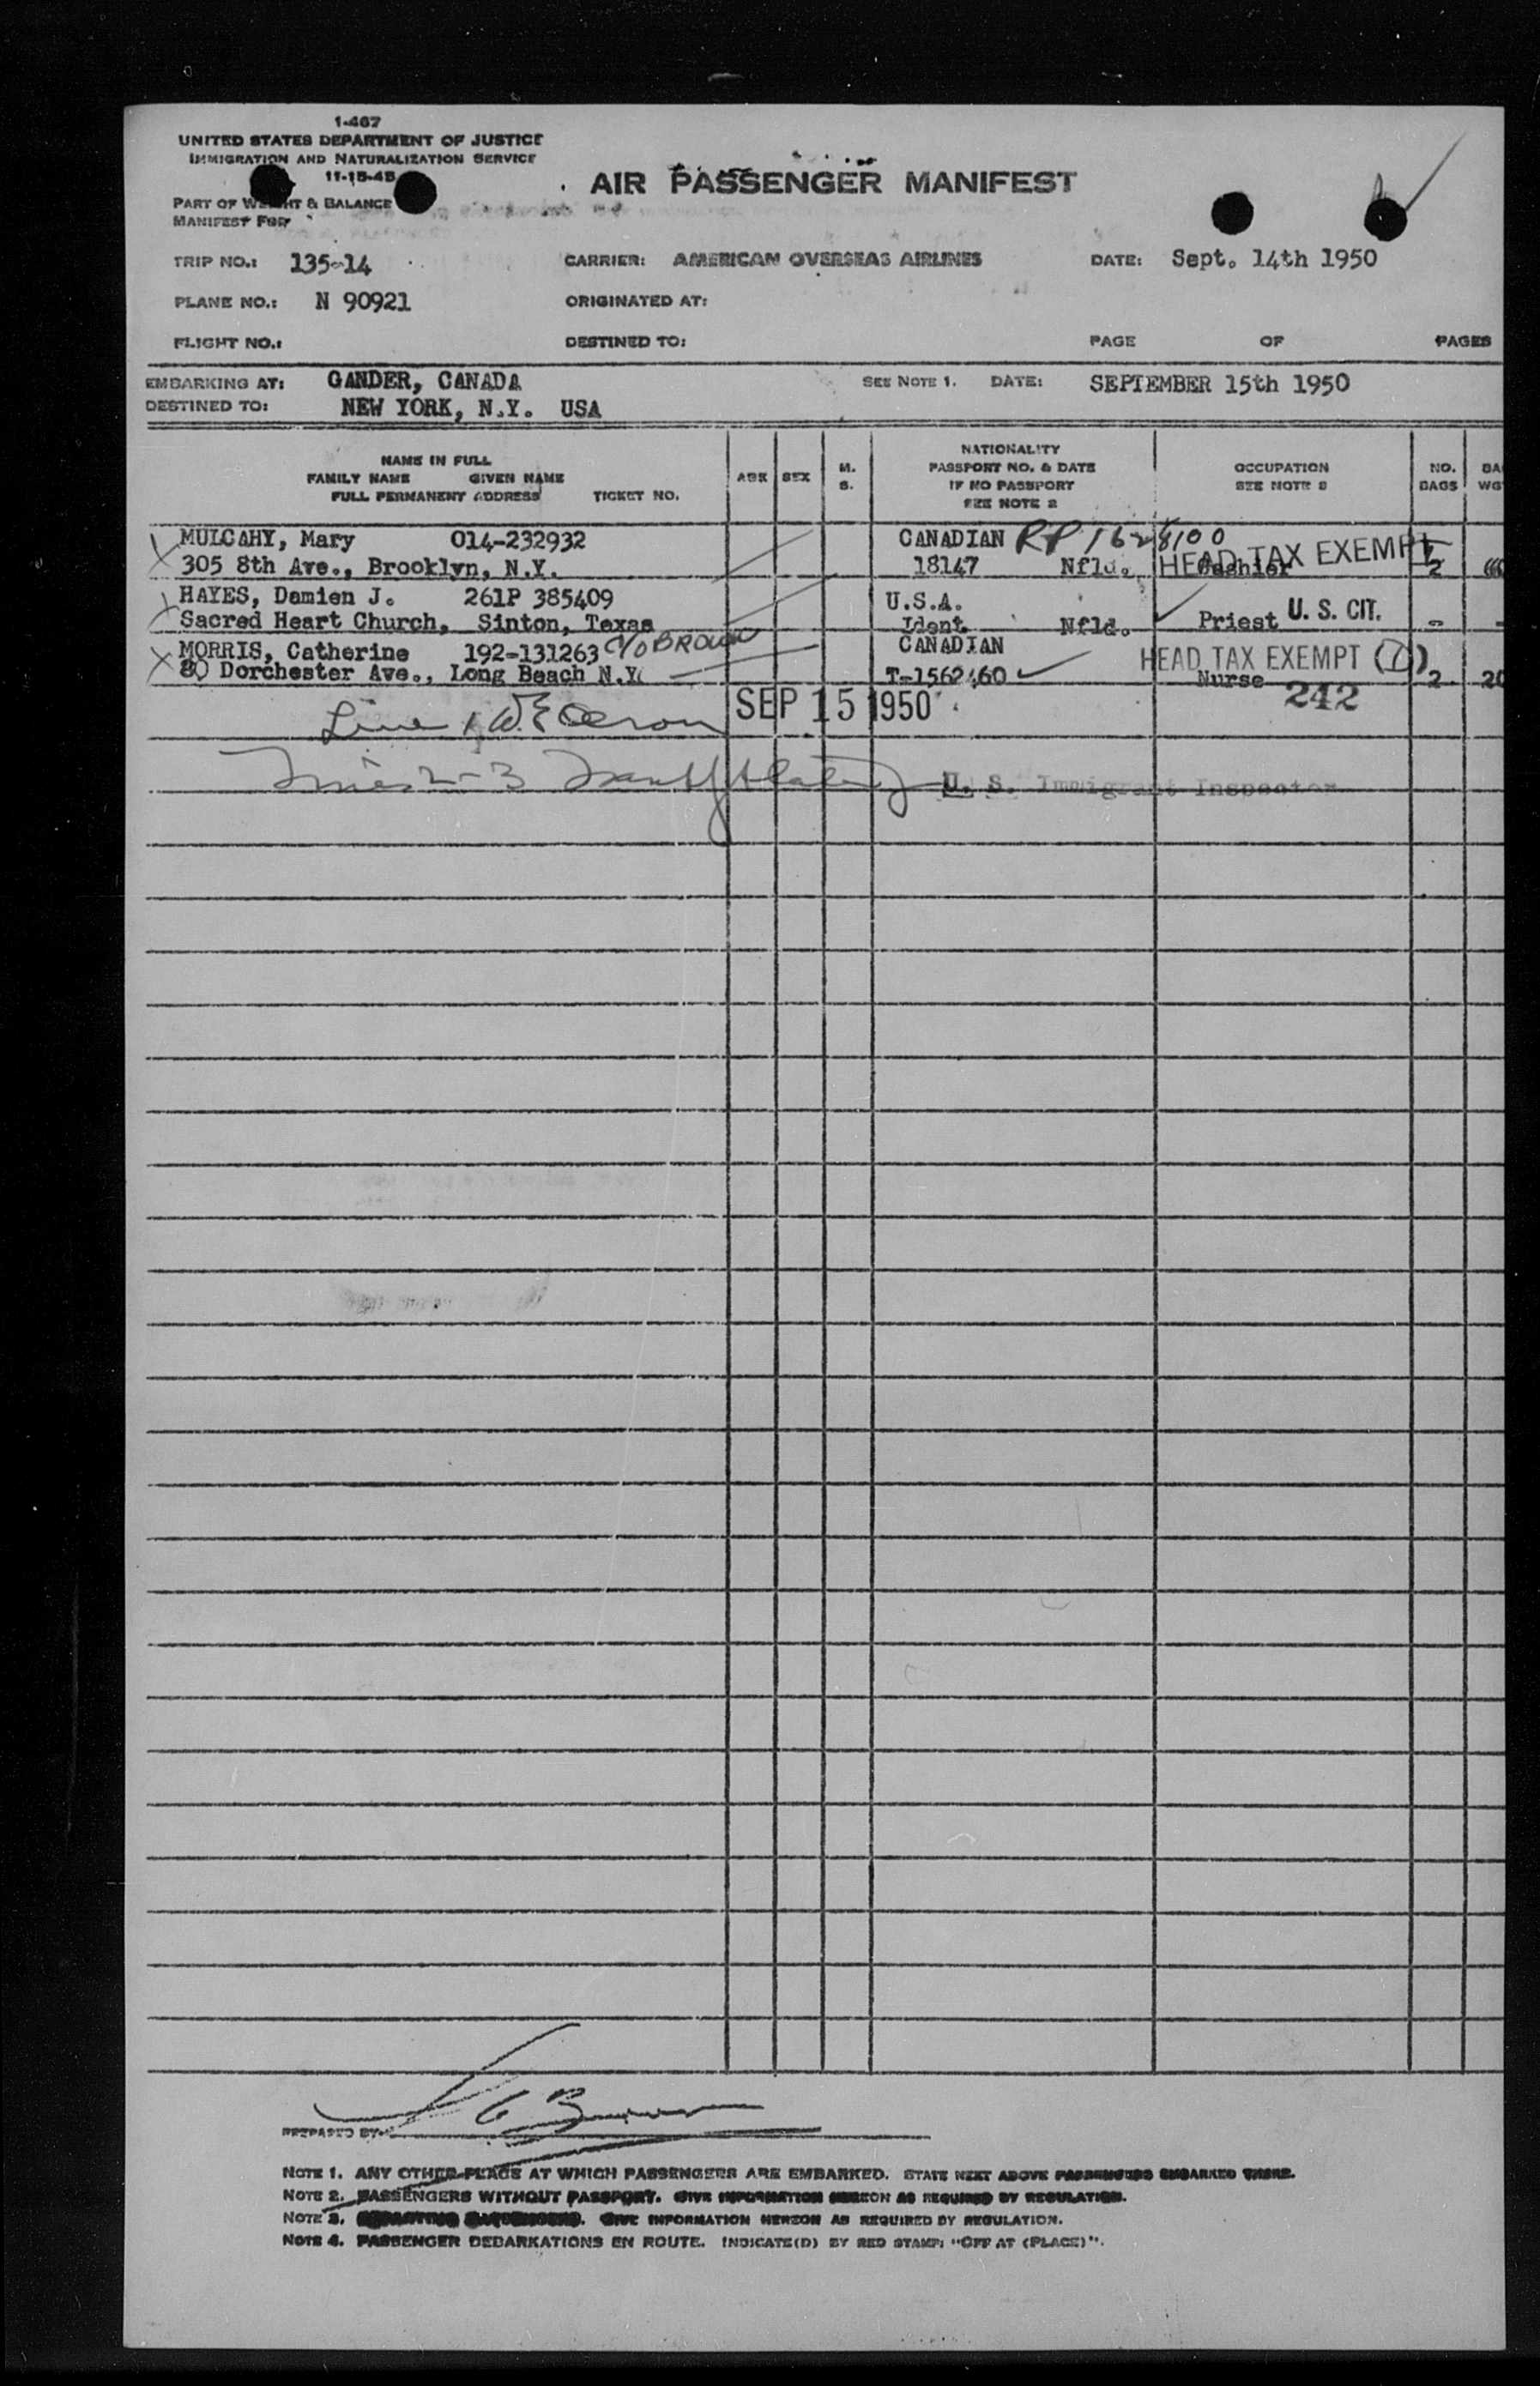 1-467
UNITED STATES DEPARTMENT OF JUSTICE
IMMIGRATION AND NATURALIZATION SERVICE
11-18-48
AIR PASSENGER MANIFEST
PART OF WEIGHT & BALANCE
MANIFEST FOR
TRIP NO.: 135-14 CARRIER: AMERICAN OVERSEAS AIRLINES DATE: Sept. 14th 1950
PLANE NO.: N 90921 ORIGINATED AT:
FLIGHT NO.: DESTINED TO: PAGE OF PAGES
EMBARKING AT: GANDER, CANADA SEE NOTE 1. DATE: SEPTEMBER 15th 1950
DESTINED TO: NEW YORK, N.Y. USA
NAME IN FULL
FAMILY NAME GIVEN NAME
FULL PERMANENT ADDRESS TICKET NO.
AGE SEX M. S.
NATIONALITY
PASSPORT NO. & DATE
IF NO PASSPORT
SEE NOTE 2
OCCUPATION
SEE NOTE 3
NO. BAGS
BA
WG
MULCAHY, Mary 014-232932 CANADIAN RP 1628100
305 8th Ave., Brooklyn, N.Y. 18147 Nfld. HEAD TAX EXEMPT Cashier 2
HAYES, Damien J. 261P 385409 U.S.A.
Sacred Heart Church, Sinton, Texas Ident. Nfld. Priest U. S. CIT. -
MORRIS, Catherine 192-131263 C/o BROWN CANADIAN HEAD TAX EXEMPT (I)
80 Dorchester Ave., Long Beach N.Y. T-1562460 Nurse 2 20
242
Line 1 SEP 15 1950
Lines 2-3 U. S. Immigrant Inspector
PREPARED BY
NOTE 1. ANY OTHER PLACE AT WHICH PASSENGERS ARE EMBARKED. STATE NEXT ABOVE PASSENGERS EMBARKED THERE.
NOTE 2. PASSENGERS WITHOUT PASSPORT. GIVE INFORMATION HEREON AS REQUIRED BY REGULATION.
NOTE 3. GIVE INFORMATION HEREON AS REQUIRED BY REGULATION.
NOTE 4. PASSENGER DEBARKATIONS EN ROUTE. INDICATE(D) BY RED STAMP: "OFF AT (PLACE)".